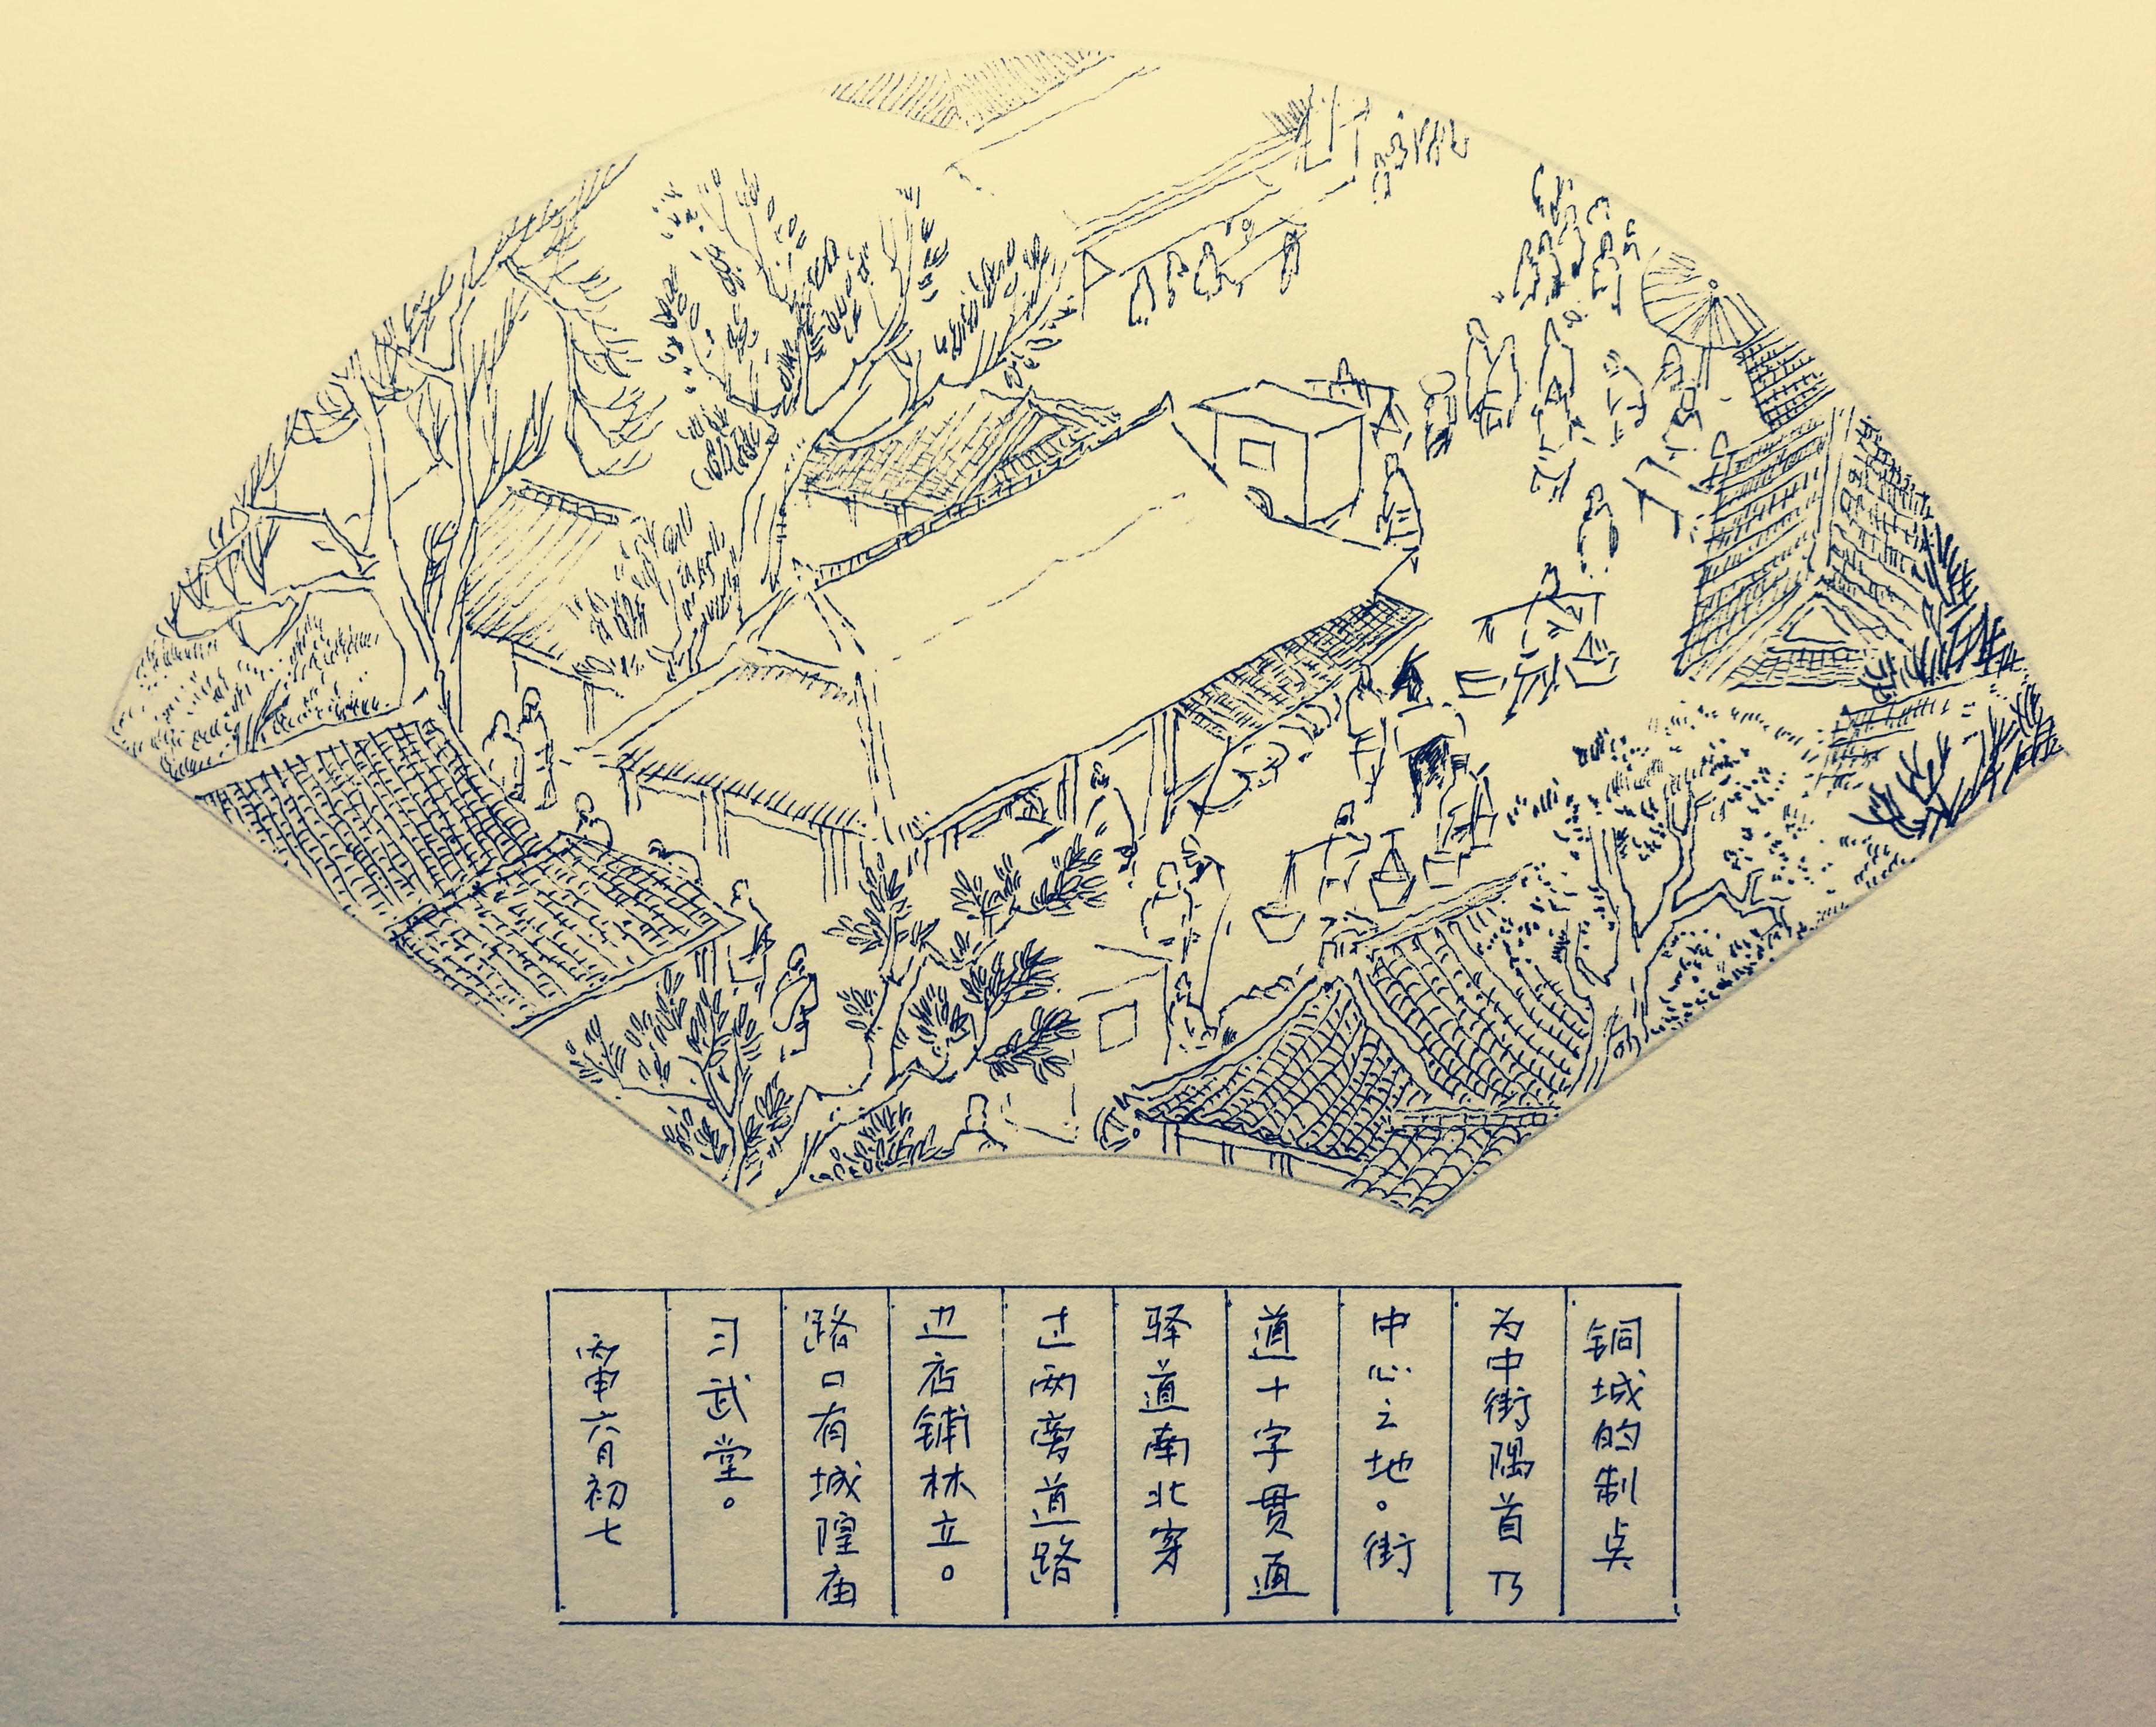 铜城的制点
为中街隅首乃
中心之地。街
道十字贯通
驿道南北穿
过两旁道路
边店铺林立。
路口有城隍庙
习武堂。
丙申六月初七